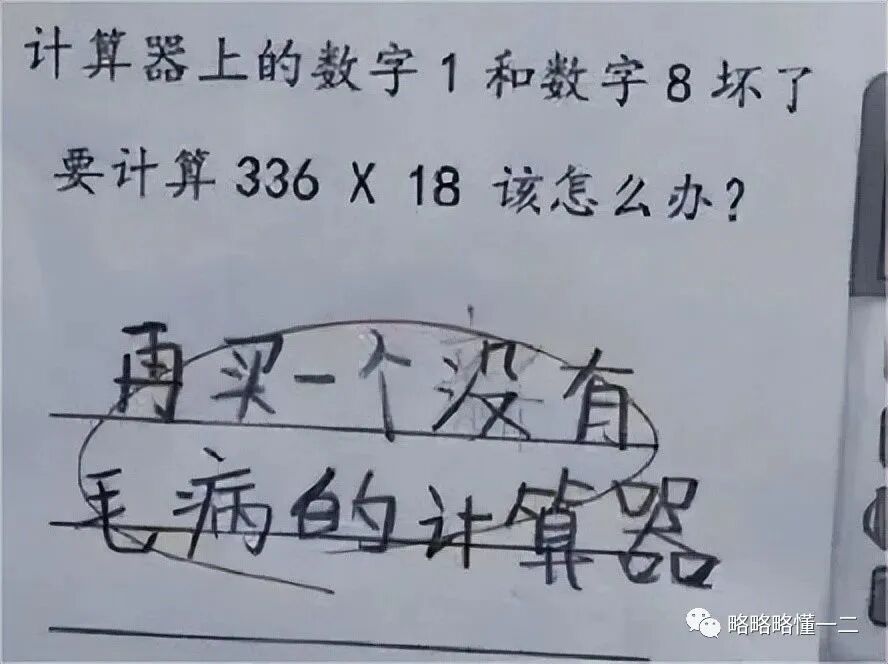 计算器上的数字1和数字8坏了
要计算336 X 18 该怎么办?
再买一个没有
毛病的计算器
略略略懂一二